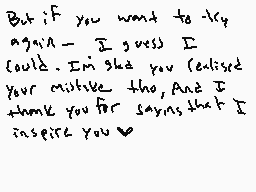 But if you want to try
again - I guess I
could. I'm glad you realised
your mistake tho, And I
thank you for saying that I
inspire you ♥